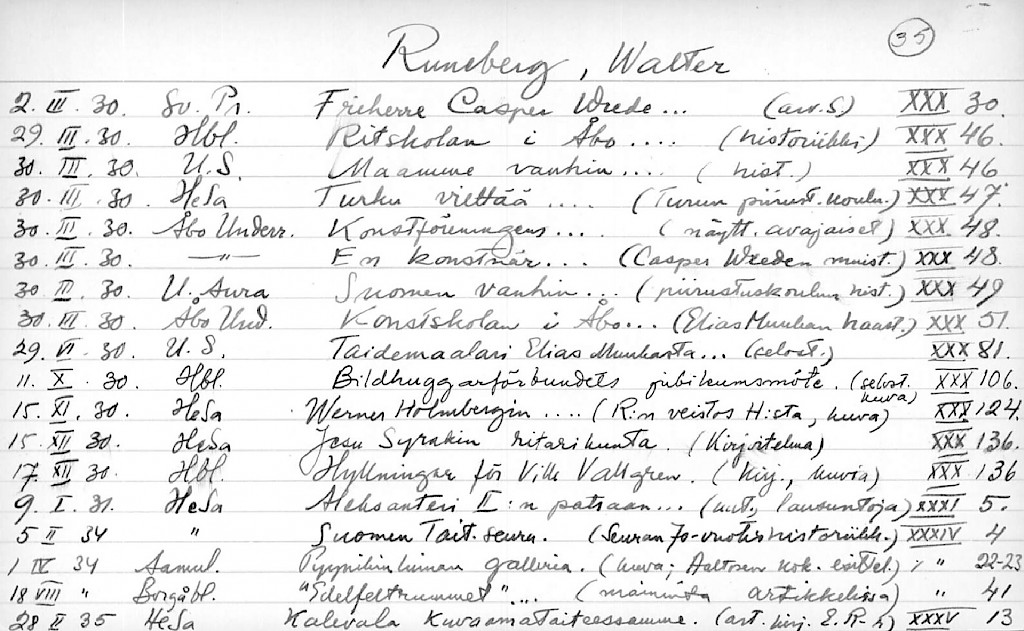 35
Runeberg, Walter
2. III. 30. Sv. Pr. Friherre Casper Wrede... (arv. S) XXX 30.
29. III. 30. Hbl. Ritskolan i Åbo .... (historiikki) XXX 46.
30. III. 30. U.S. Maamme vanhin .... (hist.) XXX 46
30. III. 30. HeSa Turku viettää .... (Turun piirust. koulu.) XXX 47.
30. III. 30. Åbo Underr. Konstföreningens .... (näytt. avajaiset) XXX. 48.
30. III. 30. —"— En konstnär.... (Casper Wreden muist.) XXX 48.
30. III. 30. U. Aura Suomen vanhin ... (piirustuskoulun hist.) XXX 49
30. III. 30. Åbo Und. Konstskolan i Åbo... (Elias Muukan haast.) XXX 51.
29. VI. 30. U.S. Taidemaalari Elias Muukasta... (selost.) XXX 81.
11. X. 30. Hbl. Bildhuggarförbundets jubileumsmöte. (selost. kuva) XXX 106.
15. XI. 30. HeSa Werner Holmbergin .... (R:n veistos H:sta, kuva) XXX 124.
15. XII 30. HeSa Jesu Syrakin ritarikunta. (Kirjoitelma) XXX 136.
17. XII 30. Hbl. Hyllningar för Ville Vallgren. (Kirj., kuvia) XXX 136
9. I. 31. HeSa Aleksanteri II:n patsaan... (uut., lausuntoja) XXXI 5.
5 II 34 " Suomen Tait. seura. (Seuran 70-vuotishistoriikk.) XXXIV 4
1 IV 34 Aamul. Pyynikinlinnan galleria. (kuva; Aaltosen kok. esittel.) " " 22-23
18 VIII " Borgåbl. "Edelfeltrummet"... (maininta artikkelissa) " 41
28 II 35 HeSa Kalevala Kuvaamataiteessamme. (art. kirj. E. R-r) XXXV 13